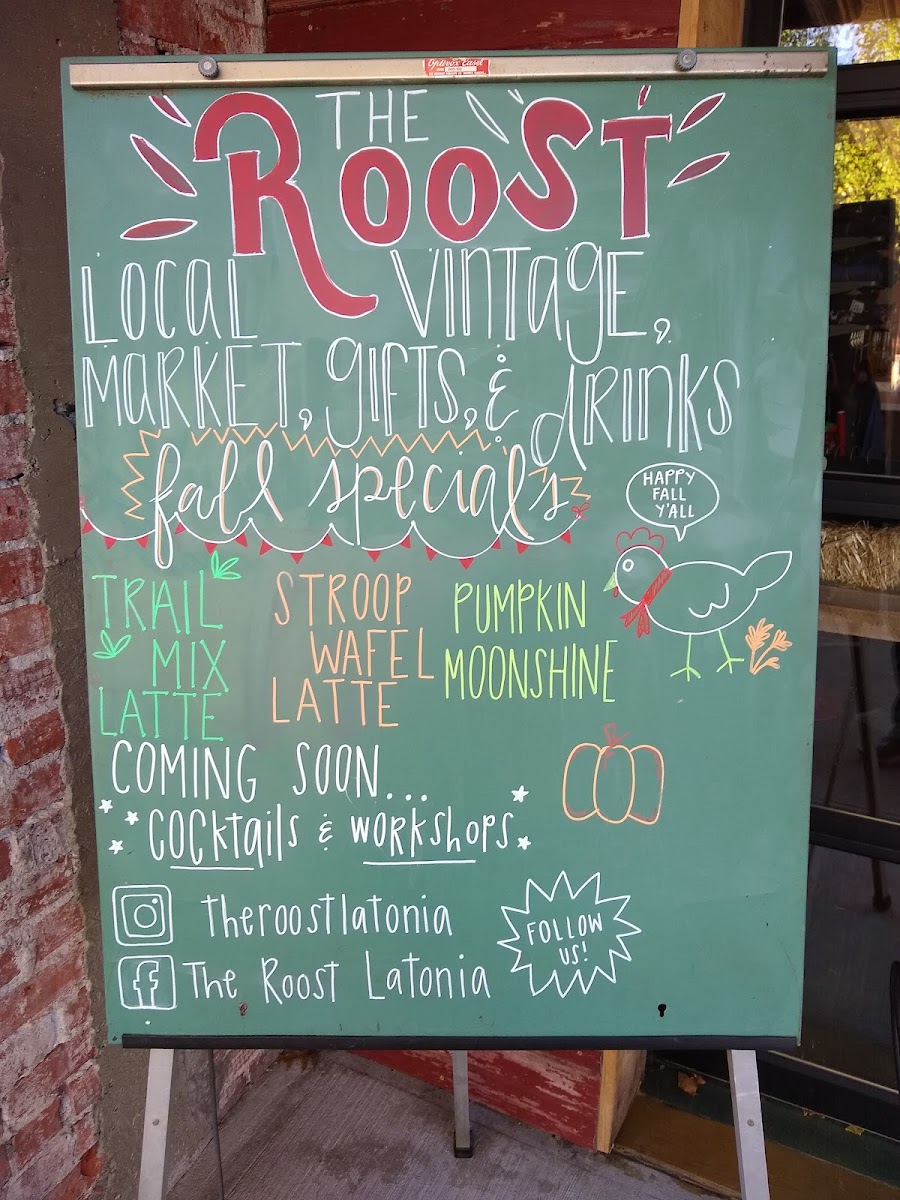 Optivox Easel
THE
ROOST
LOCAL VINTAGE,
MARKET, GIFTS, & DRINKS
fall specials
HAPPY
FALL
Y'ALL
TRAIL
MIX
LATTE
STROOP
WAFEL
LATTE
PUMPKIN
MOONSHINE
COMING SOON...
COCKTAILS & WORKSHOPS
theroostlatonia
The Roost Latonia
FOLLOW
US!